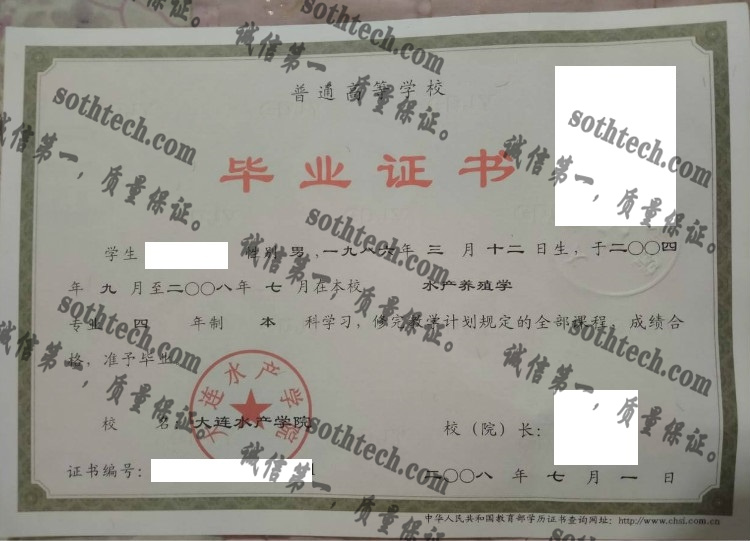 普通高等学校
毕业证书
学生 性别 男 ,一九八六年 三 月 十二 日生, 于二〇〇四
年 九 月至二〇〇八年 七 月在本校 水产养殖学
专业 四 年制 本 科学习, 修完教学计划规定的全部课程, 成绩合
格, 准予毕业
校 名: 大连水产学院 校(院)长:
大连水产学院
证书编号: 1 二〇〇八 年 七 月 一 日
中华人民共和国教育部学历证书查询网址: http://www.chsi.com.cn
sothtech.com
诚信第一,质量保证。
sothtech.com
诚信第一,质量保证。
sothtech.com
诚信第一,质量保证。
sothtech.com
诚信第一,质量保证。
sothtech.com
诚信第一,质量保证。
sothtech.com
诚信第一,质量保证。
sothtech.com
诚信第一,质量保证。
sothtech.com